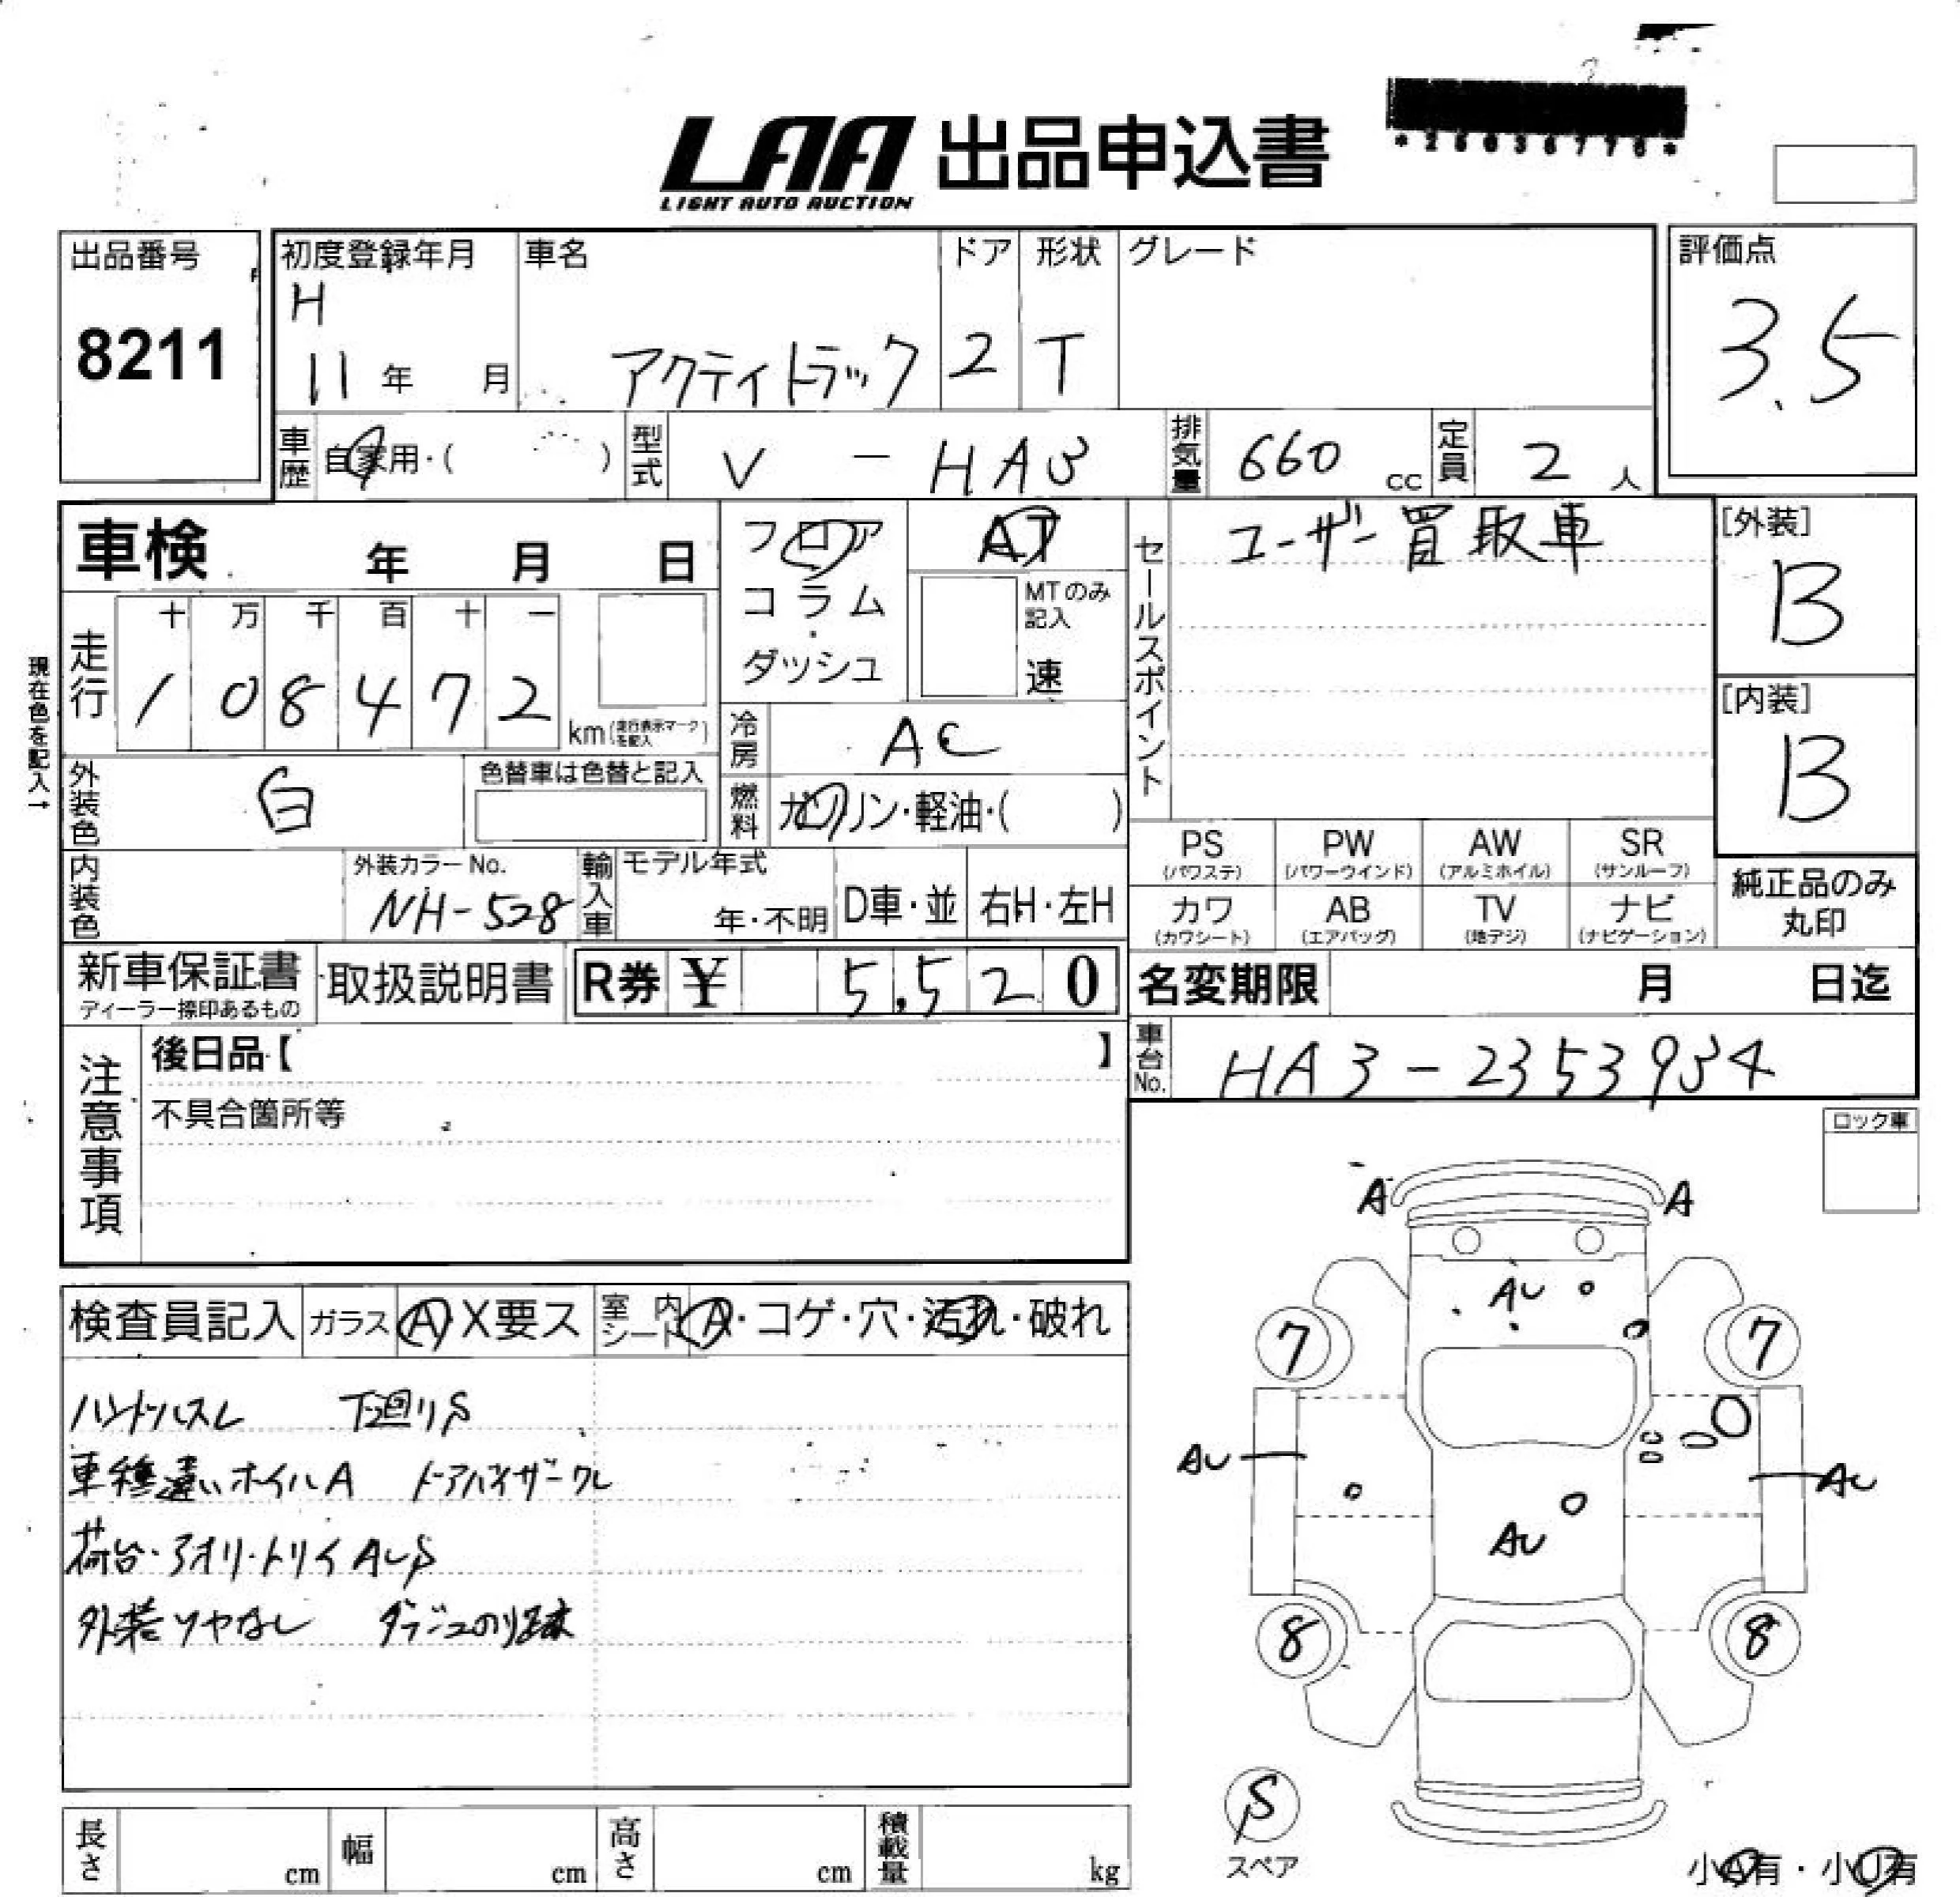 LAA 出品申込書
LIGHT AUTO AUCTION
出品番号
8211
初度登録年月
H
11 年 月
車名
アクティトラック
ドア
2
形状
T
グレード
評価点
3.5
車歴 自家用・( )
型式 V - HA3
排気量 660 cc
定員 2 人
車検 年 月 日
フロア
コラム
・
ダッシュ
AT
MTのみ
記入
速
セールスポイント
ユーザー買取車
[外装]
B
[内装]
B
現在色を記入→
走行
十 万 千 百 十 一
1 0 8 4 7 2
km (走行表示マークを記入)
冷房 AC
外装色 白
色替車は色替と記入
燃料 ガソリン・軽油・( )
内装色
外装カラーNo.
NH-528
輸入車
モデル年式
年・不明
D車・並
右H・左H
PS
(パワステ)
PW
(パワーウインド)
AW
(アルミホイル)
SR
(サンルーフ)
カワ
(カワシート)
AB
(エアバッグ)
TV
(地デジ)
ナビ
(ナビゲーション)
純正品のみ
丸印
新車保証書
ディーラー捺印あるもの
取扱説明書
R券 ¥ 5,520
名変期限 月 日迄
車台No. HA3-2353934
注意事項
後日品【 】
不具合箇所等
ロック車
検査員記入
ガラス A X要ス
室内シート A・コゲ・穴・汚れ・破れ
ハンドルスレ 下廻りS
車種違いホイルA ドアバイザーワレ
荷台・アオリ・トリイAUS
外装ツヤなし ダッシュのり跡
A A
AU
7 7
AU AU
AU
8 8
S
スペア
小A有・小U有
長さ cm
幅 cm
高さ cm
積載量 kg